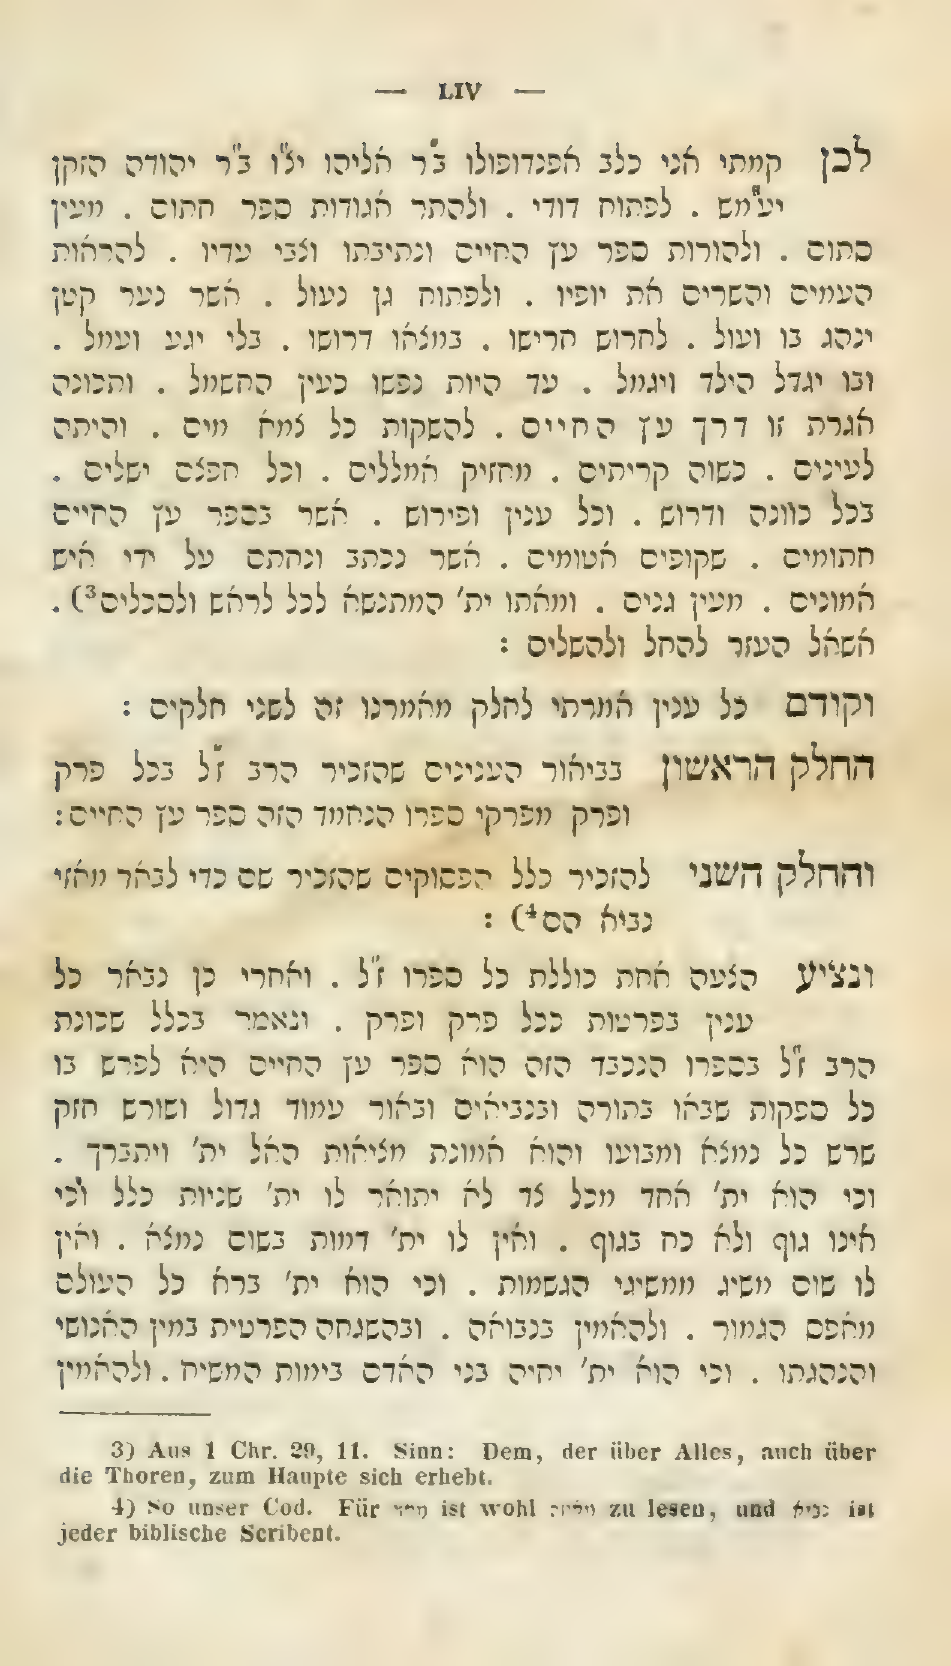 — LIV —
לכן קמתי אני כלב אפנדופולו ב״ר אליהו יצ״ו ב״ר יהודה הזקן
יע״מש . לפתוח דודי . ולהתר אגודות ספר חתום . מעין
סתום . ולהורות ספר עץ החיים ונתיבתו וצבי עדיו . להראות
העמים והשרים את יופיו . ולפתוח גן נעול . אשר נער קטן
ינהג בו ועול . לחרוש חרישו . במצאו דרושו . בלי יגע ועמל .
ובו יגדל הילד ויגמל . עד היות נפשו כעין החשמל . ותכונה
אגרת זו דרך עץ החיים . להשקות כל צמא מים . והיתה
לעינים . כשוה קריתים . מחזיק אמללים . וכל חפצם ישלים .
בכל כוונה ודרוש . וכל ענין ופירוש . אשר בספר עץ החיים
חתומים . שקופים אטומים . אשר נכתב ונחתם על ידי איש
אמונים . מעין גנים . ומאתו ית׳ המתנשא לכל לראש ולסכלים3) .
אשאל העזר להחל ולהשלים :
וקודם כל ענין אמרתי לחלק מאמרנו זה לשני חלקים :
החלק הראשון בביאור הענינים שהזכיר הרב ז״ל בכל פרק
ופרק מפרקי ספרו הנחמד הזה ספר עץ החיים:
והחלק השני להזכיר כלל הפסוקים שהזכיר שם כדי לבאר מאזי
נביא הם4) :
ונציע הצעה אחת כוללת כל ספרו ז״ל . ואחרי כן נבאר כל
ענין בפרטות ככל פרק ופרק . ונאמר בכלל שכונת
הרב ז״ל בספרו הנכבד הזה הוא ספר עץ החיים היא לפרש בו
כל ספקות שבאו בתורה ובנביאים ובאור עמוד גדול ושורש חזק
שרש כל נמצא ומבועו והוא אמונת מציאות האל ית׳ ויתברך .
וכי הוא ית׳ אחד מכל צד לא יתואר לו ית׳ שניות כלל וכי
אינו גוף ולא כח בגוף . ואין לו ית׳ דמות בשום נמצא . ואין
לו שום משיג ממשיגי הגשמות . וכי הוא ית׳ ברא כל העולם
מאפס הגמור . ולהאמין בנבואה . ובהשגחה הפרטית במין האנושי
והנהגתו . וכי הוא ית׳ יחיה בני האדם בימות המשיח . ולהאמין
3) Aus 1 Chr. 29, 11. Sinn: Dem, der über Alles, auch über
die Thoren, zum Haupte sich erhebt.
4) So unser Cod. Für ist wohl zu lesen, und נביא ist
jeder biblische Scribent.